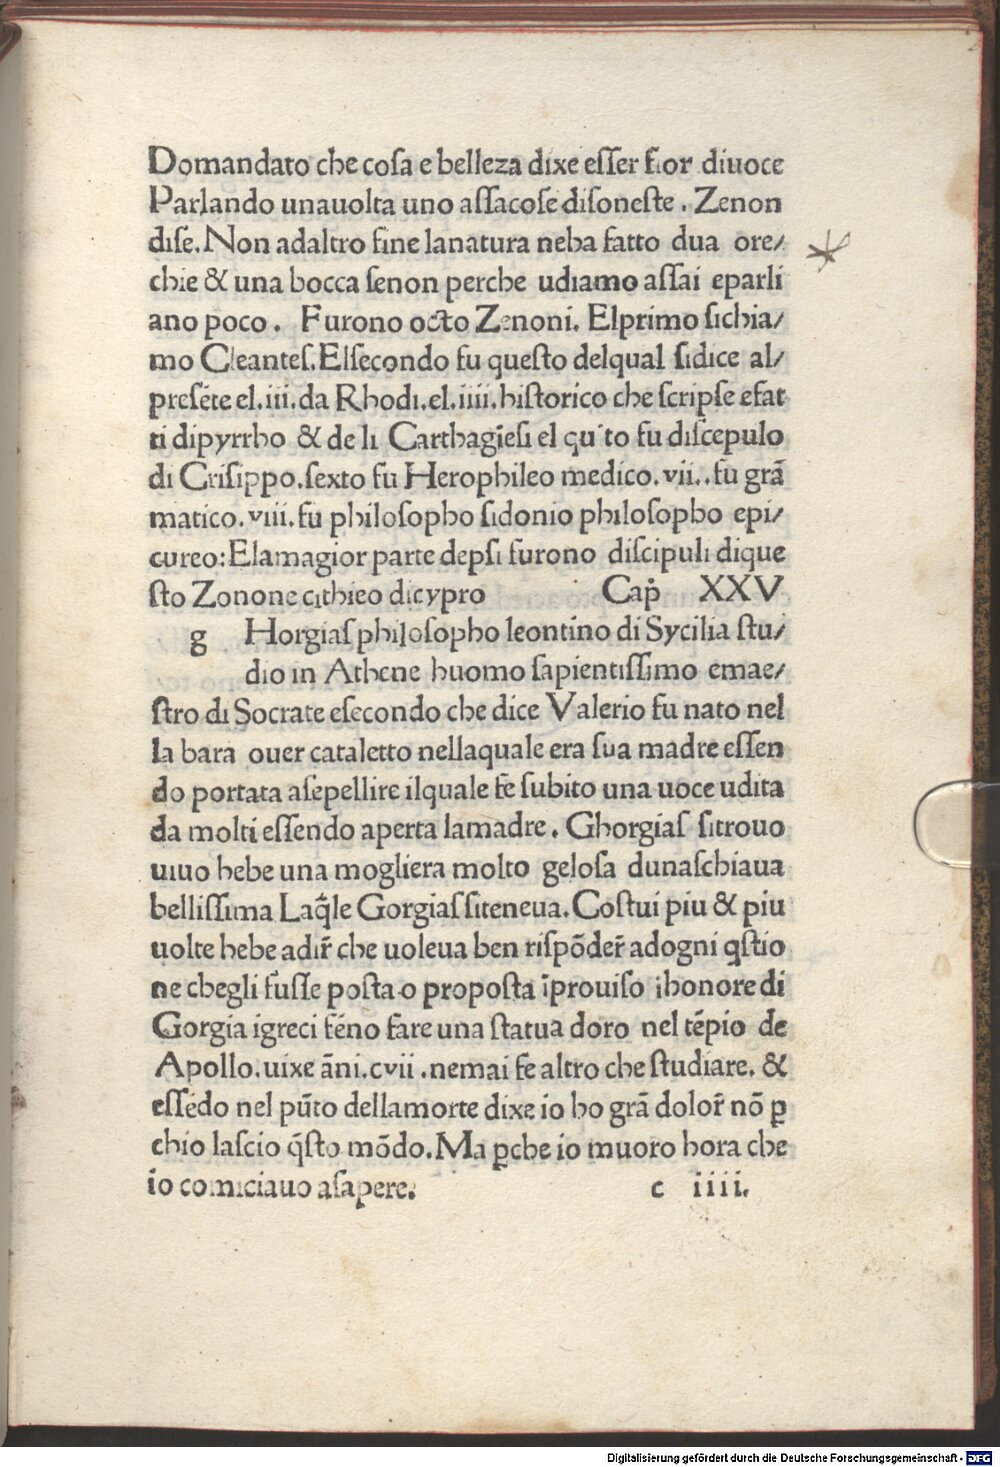 Domandato che coſa e belleza dixe eſſer fior diuoce
Parlando unauolta uno aſſacoſe diſoneſte . Zenon
diſe. Non adaltro fine lanatura neha fatto dua ore/
chie & una bocca ſenon perche udiamo aſſai eparli
ano poco . Furono octo Zenoni. Elprimo ſichia/
mo Cleanteſ. Elſecondo fu queſto delqual ſidice al/
preſēte el.iii.da Rhodi.el.iiii.hiſtorico che ſcripſe efat
ti dipyrrho & de li Carthagīeſi el qu to fu diſcepulo
di Criſippo.ſexto fu Herophileo medico.vii..fu grā
matico.viii.fu philoſopho ſidonio philoſopho epi/
cureo: Elamagior parte depſi furono diſcipuli dique
ſto Zonone cithieo dicypro Cap̄ XXV
g Horgiaſ philoſopho leontino di Sycilia ſtu/
dio in Athene huomo ſapientiſſimo emae/
ſtro di Socrate eſecondo che dice Valerio fu nato nel
la bara ouer cataletto nellaquale era ſua madre eſſen
do portata aſepellire ilquale fe ſubito una uoce udita
da molti eſſendo aperta lamadre. Ghorgiaſ ſitrouo
uiuo hebe una mogliera molto geloſa dunaſchiaua
belliſſima Laq̄le Gorgiaſ ſiteneua. Coſtui piu & piu
uolte hebe adir̄ che uoleua ben riſpōder̄ adogni q̄ſtio
ne chegli fuſſe poſta o propoſta īprouiſo ihonore di
Gorgia igreci fēno fare una ſtatua doro nel tēpio de
Apollo.uixe āni.cvii .nemai fe altro che ſtudiare. &
eſſēdo nel pūto dellamorte dixe io ho grā dolor̄ nō ꝑ
chio laſcio q̄ſto mōdo. Ma ꝑche io muoro hora che
io comiciauo aſapere.
c iiii.
Digitalisierung gefördert durch die Deutsche Forschungsgemeinschaft - DFG